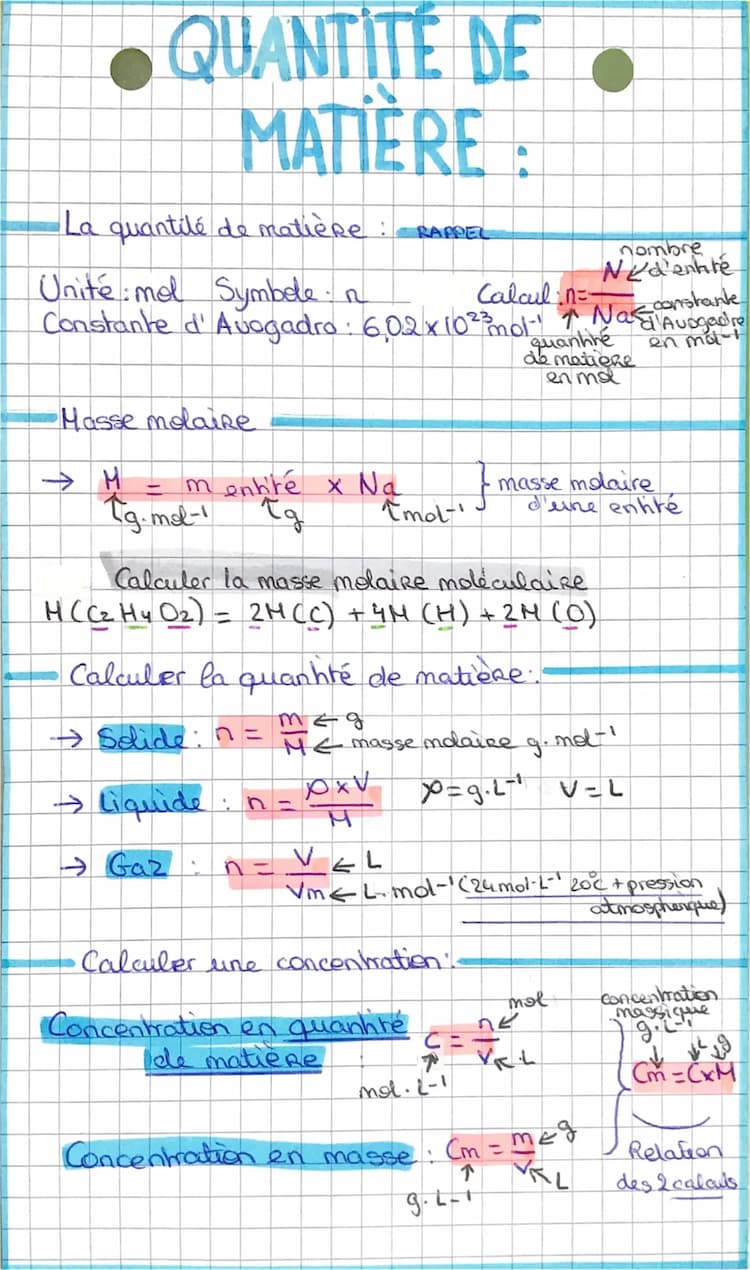 QUANTITÉ DE
MATIÈRE :
La quantité de matière : RAPPEL
nombre
N ↙ d'entité
Unité : mol Symbole : n Calcul : n = N/Na ← constante d'Avogadro en mol-1
Constante d'Avogadro : 6,02 x 10²³ mol-1 ↑
quantité
de matière
en mol
Masse molaire
→ M = m entité x Na } masse molaire
↑ g.mol-1 ↑ g ↑ mol-1 d'une entité
Calculer la masse molaire moléculaire
M(C2H4O2) = 2M(C) + 4M(H) + 2M(O)
Calculer la quantité de matière :
→ Solide : n = m/M ← g
← masse molaire g.mol-1
→ Liquide : n = ρxV/M ρ = g.L-1 V = L
→ Gaz : n = V/Vm ← L
← L.mol-1 (24mol.L-1 20°C + pression
atmosphérique)
Calculer une concentration :
Concentration en quantité
de matière : C = n/V
mol
L
mol.L-1
concentration
massique
g.L-1
Cm = CxM
Concentration en masse : Cm = m/V ← g
L
g.L-1
Relation
des 2 calculs